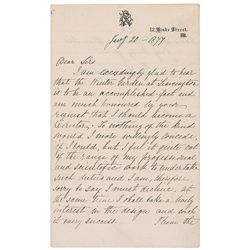 12, Hinde Street,
W.
Jany 20 - 1877
Dear Sir
I am exceedingly glad to hear
that the Winter Garden at Leamington
is to be an accomplished fact and
am much honoured by your
request that I should become a
Director. To nothing of the kind
would I more willingly consent
if I could, but I feel it quite out
of the range of my professional
and scientific work to undertake
such duties and I am, therefore,
sorry to say I must decline, at
the same time I shall take a lively
interest in the design and wish
it every success.
Please the